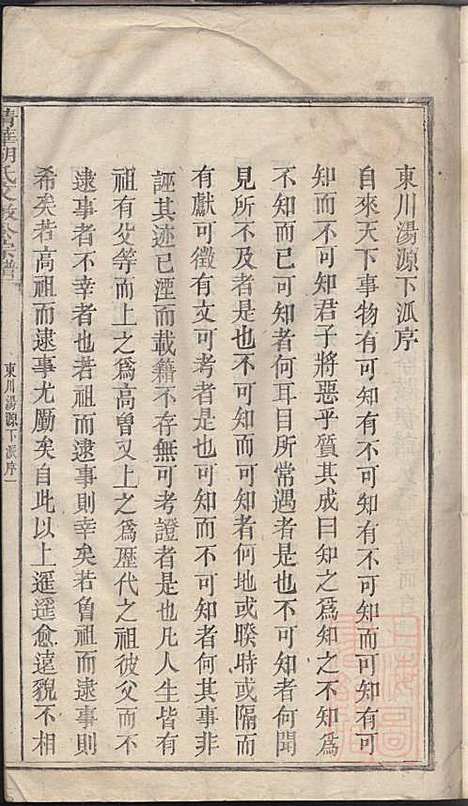 東川湯源下派序
自來天下事物有可知有不可知而可知有可
知而不可知君子將惡乎質其成曰知之爲知之不知爲
不知而已可知者何耳目所常遇者是也不可知者何聞
見所不及者是也可知而不可知者何地或暌時或隔而
有獻可徵有文可考者是也不可知而可知者何其事非
誣其迹已湮而載籍不存無可考證者是也凡人生皆有
祖有父等而上之爲高曾又上之爲歷代之祖彼父而不
逮事者不幸者也若祖而逮事則幸矣若曾祖而逮事則
希矣若高祖而逮事尤尠矣自此以上遥遥愈遠貌不相
清華胡氏文敏公宗譜
東川湯源下派序一